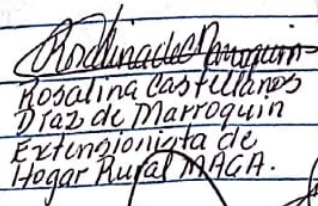 Rosalina de Marroquin
Rosalina Castellanos
Diaz de Marroquin
Extensionista de
Hogar Rural MAGA.